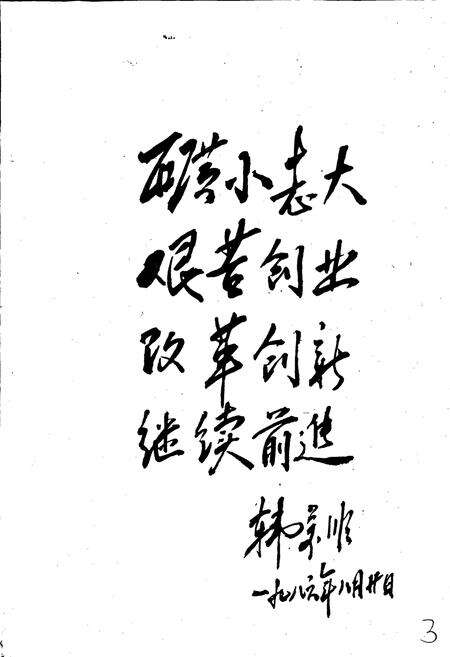 西塔小志大
艰苦创业
改革创新
继续前進
韩
一九八六年八月廿日
3